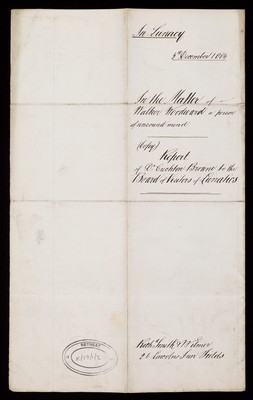 In Lunacy
8th December 1884
In the Matter of
Walter Woodward a person
of unsound mind
(Copy)
Report
of Dr Crichton Browne to the
Board of Visitors of Lunatics
26 Lincolns Inn Fields
RETREAT